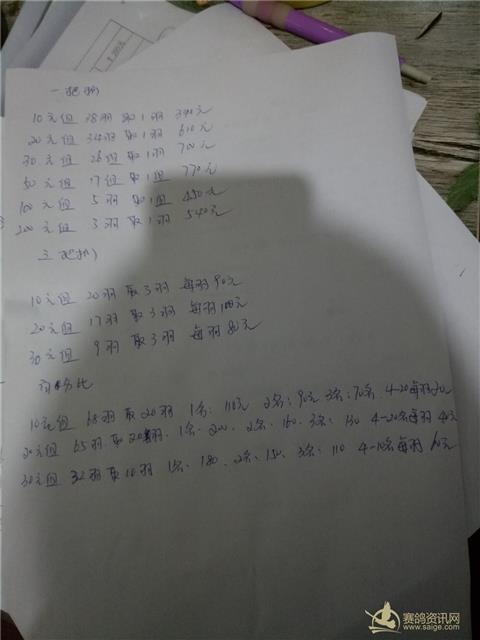 一把抓
10元组 38羽 取1羽 340元
20元组 34羽 取1羽 610元
30元组 26组 取1羽 700元
50元组 17组 取1组 770元
100元组 5羽 取1组 450元
200元组 3羽 取1羽 540元
三把抓
10元组 20羽 取3羽 每羽90元
20元组 17羽 取3羽 每羽100元
30元组 9羽 取3羽 每羽80元
百分比
10元组 68羽 取20羽 1名:110元 2名:90元 3名:70名 4-20每羽20元
20元组 65羽 取20羽 1名:200 2名:160 3名:130 4-20名每羽40元
30元组 32羽 取10羽 1名:180 2名:150 3名:110 4-10名每羽60元
赛鸽资讯网
www.saige.com